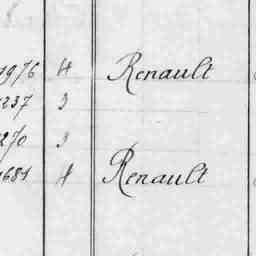 1976 4 Renault
237 3
270 3
681 4 Renault